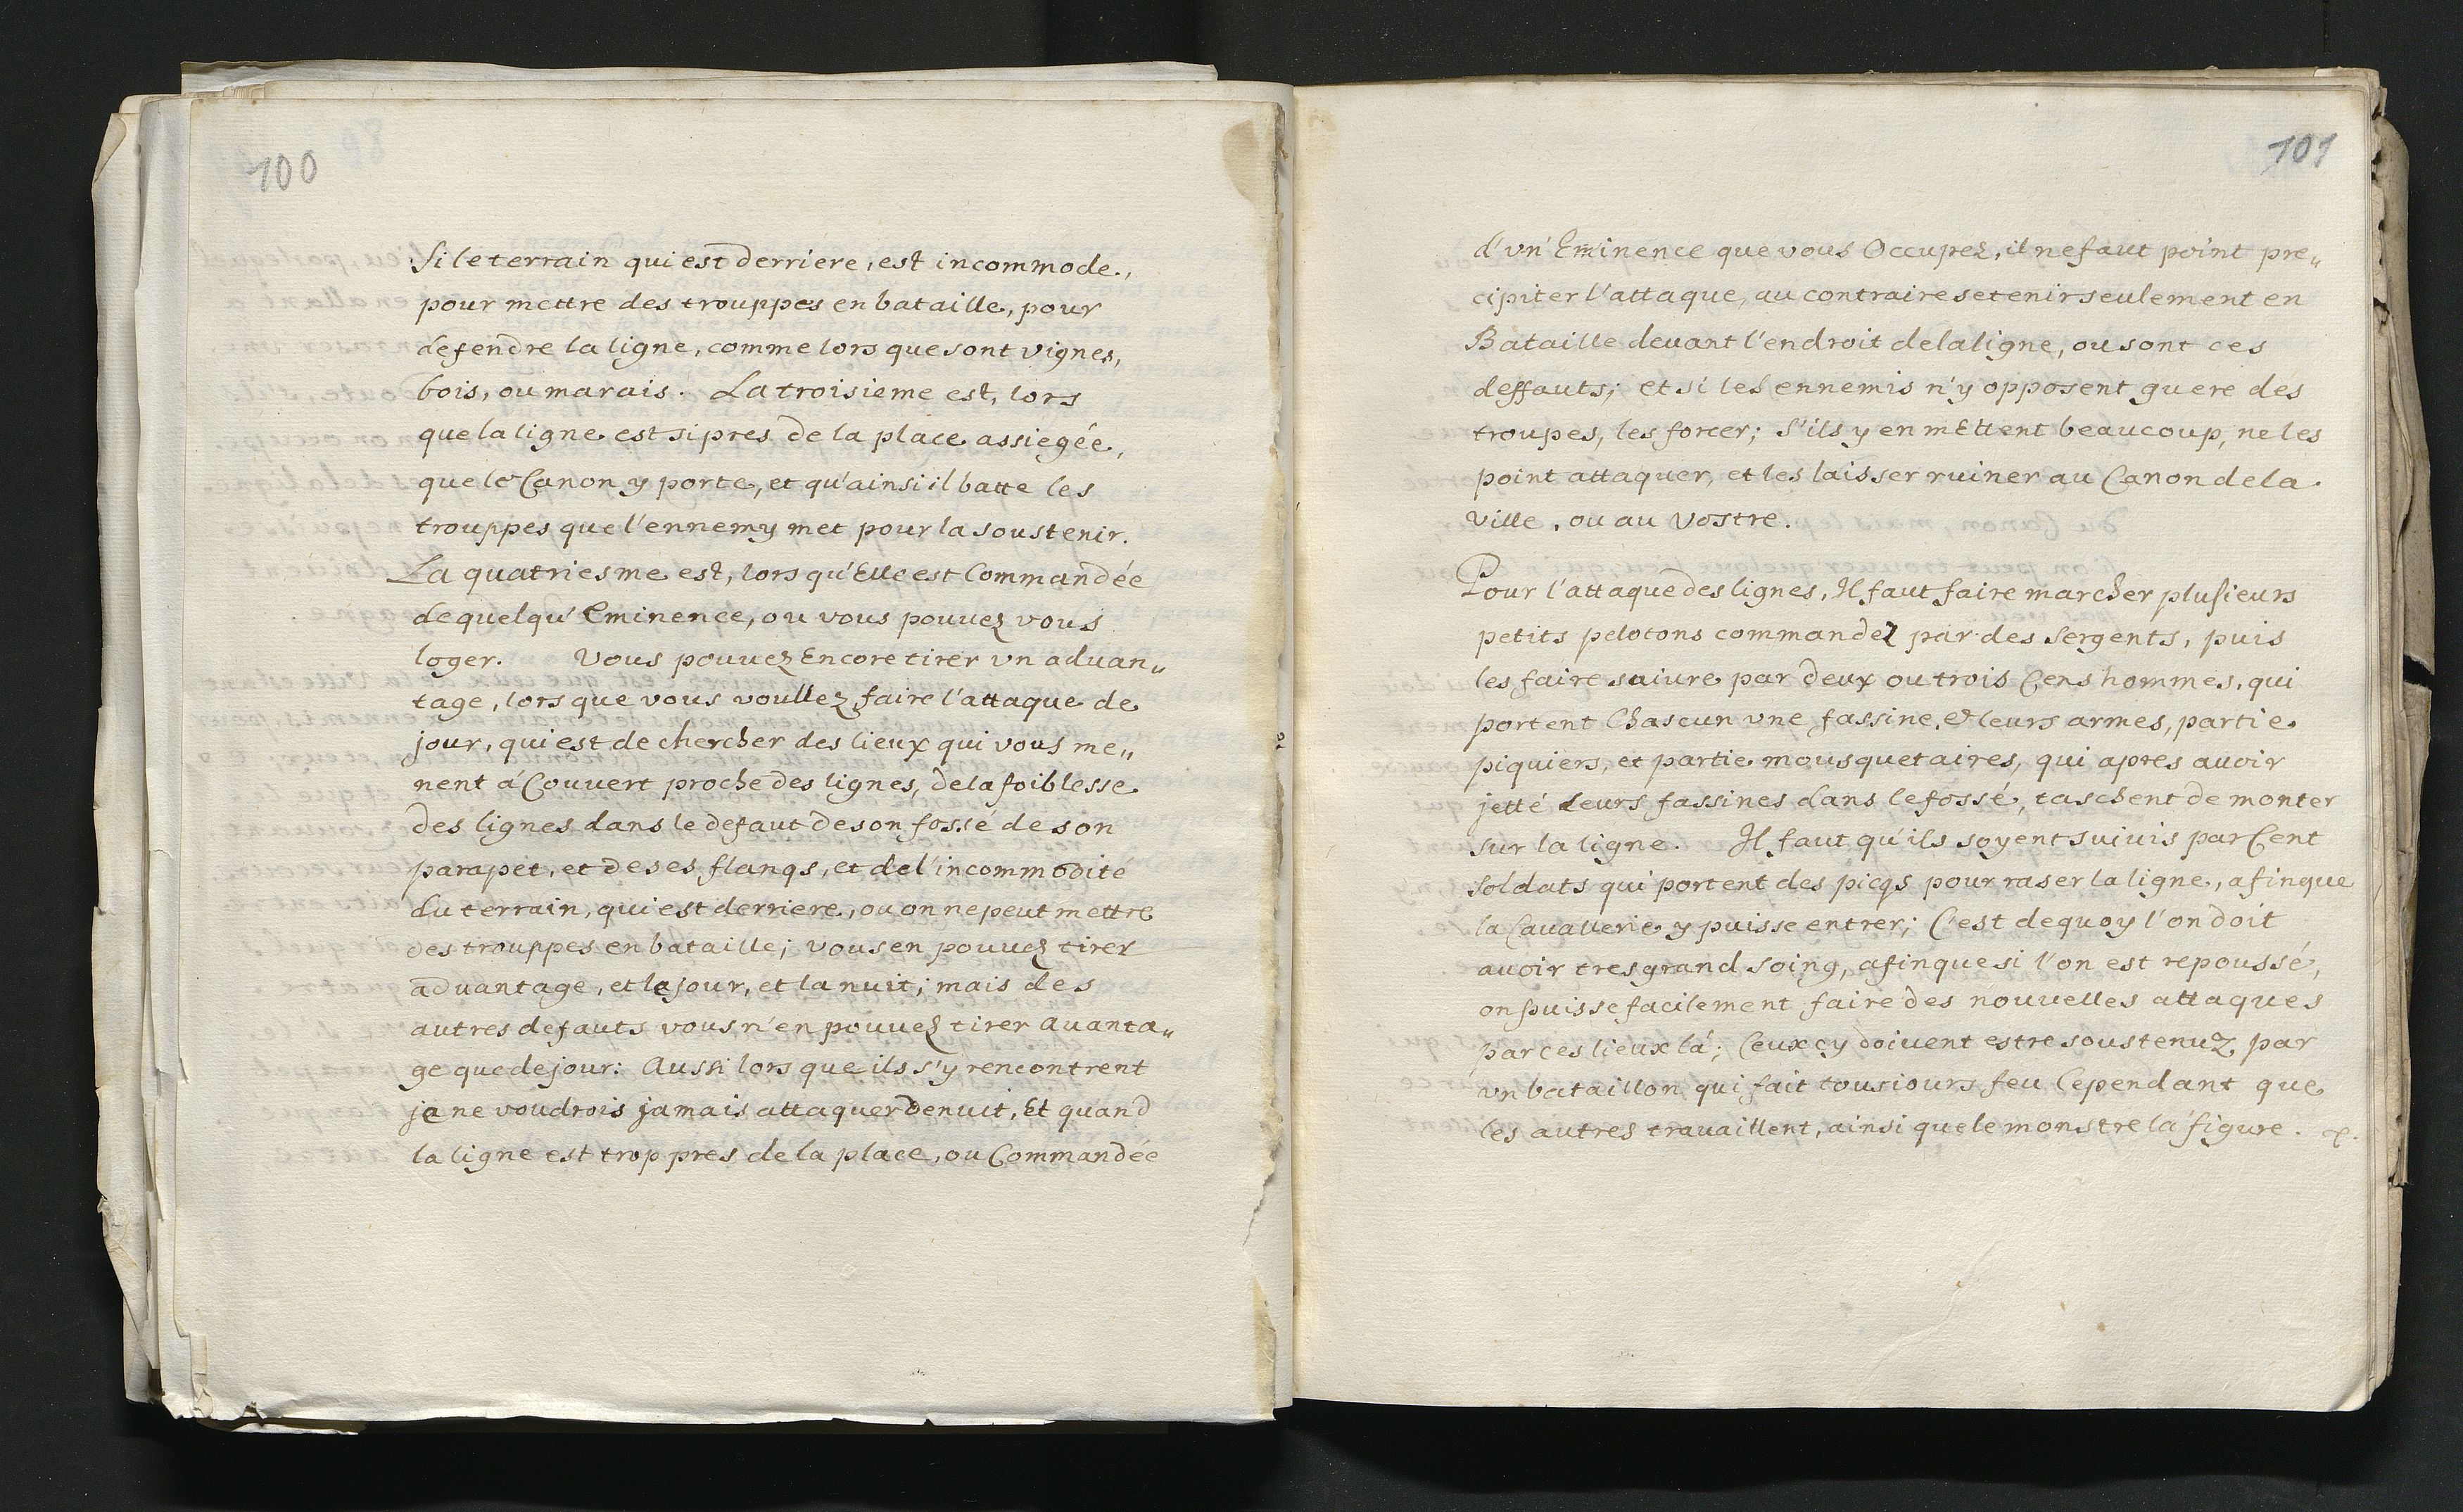 100
Si le terrain qui est derriere, est incommode,
pour mettre des trouppes en bataille, pour
defendre la ligne, comme lors que sont vignes,
bois, ou marais. La troisieme est, lors
que la ligne est si pres de la place assiegée,
que le Canon y porte, et qu'ainsi il batte les
trouppes que l'ennemy met pour la soustenir.
La quatriesme est, lors qu'Elle est Commandée
de quelqu' Eminence, ou vous pouvez vous
loger. Vous pouvez Encore tirer vn aduan„
tage, lors que vous voullez faire l'attaque de
jour, qui est de chercher des lieux qui vous me„
nent á Couvert proche des lignes, de la foiblesse
des lignes dans le defaut de son fossé de son
parapet, et de ses flanqs, et de l'incommodité
du terrain, qui est derriere, ou on ne peut mettre
des trouppes en bataille; vous en pouvez tirer
advantage, et le jour, et la nuit; mais des
autres defauts vous n'en pouvez tirer avanta„
ge que de jour: Aussi lors que ils s'y rencontrent
je ne voudrois jamais attaquer de nuit, Et quand
la ligne est trop pres de la place, ou Commandée
101
d'vn' Eminence que vous Occupez, il ne faut point pre„
cipiter l'attaque, au contraire se tenir seulement en
Bataille devant l'endroit de la ligne, ou sont ces
deffauts; et si les ennemis n'y opposent guere des
troupes, les forcer; S'ils y en mEttent beaucoup, ne les
point attaquer, et les laisser ruiner au Canon de la
ville, ou au vostre.
Pour l'attaque des lignes, Il faut faire marcher plusieurs
petits pelotons commandez par des Sergents, puis
les faire suivre par deux ou trois Cens hommes, qui
portent Chascun vne fassine, & leurs armes, partie
piquiers, et partie mousquetaires, qui apres avoir
jetté leurs fassines dans le fossé, taschent de monter
sur la ligne. Il faut qu'ils soyent suivis par Cent
Soldats qui portent des picqs pour raser la ligne, afin que
la Cavallerie y puisse entrer; C'est de quoy l'on doit
avoir tres grand soing, afin que si l'on est repoussé,
on puisse facilement faire des nouvelles attaques
par ces lieux lá; Ceux cy doivent estre soustenuz par
vn bataillon qui fait tousiours feu Cependant que
les autres travaillent, ainsi que le monstre la figure.